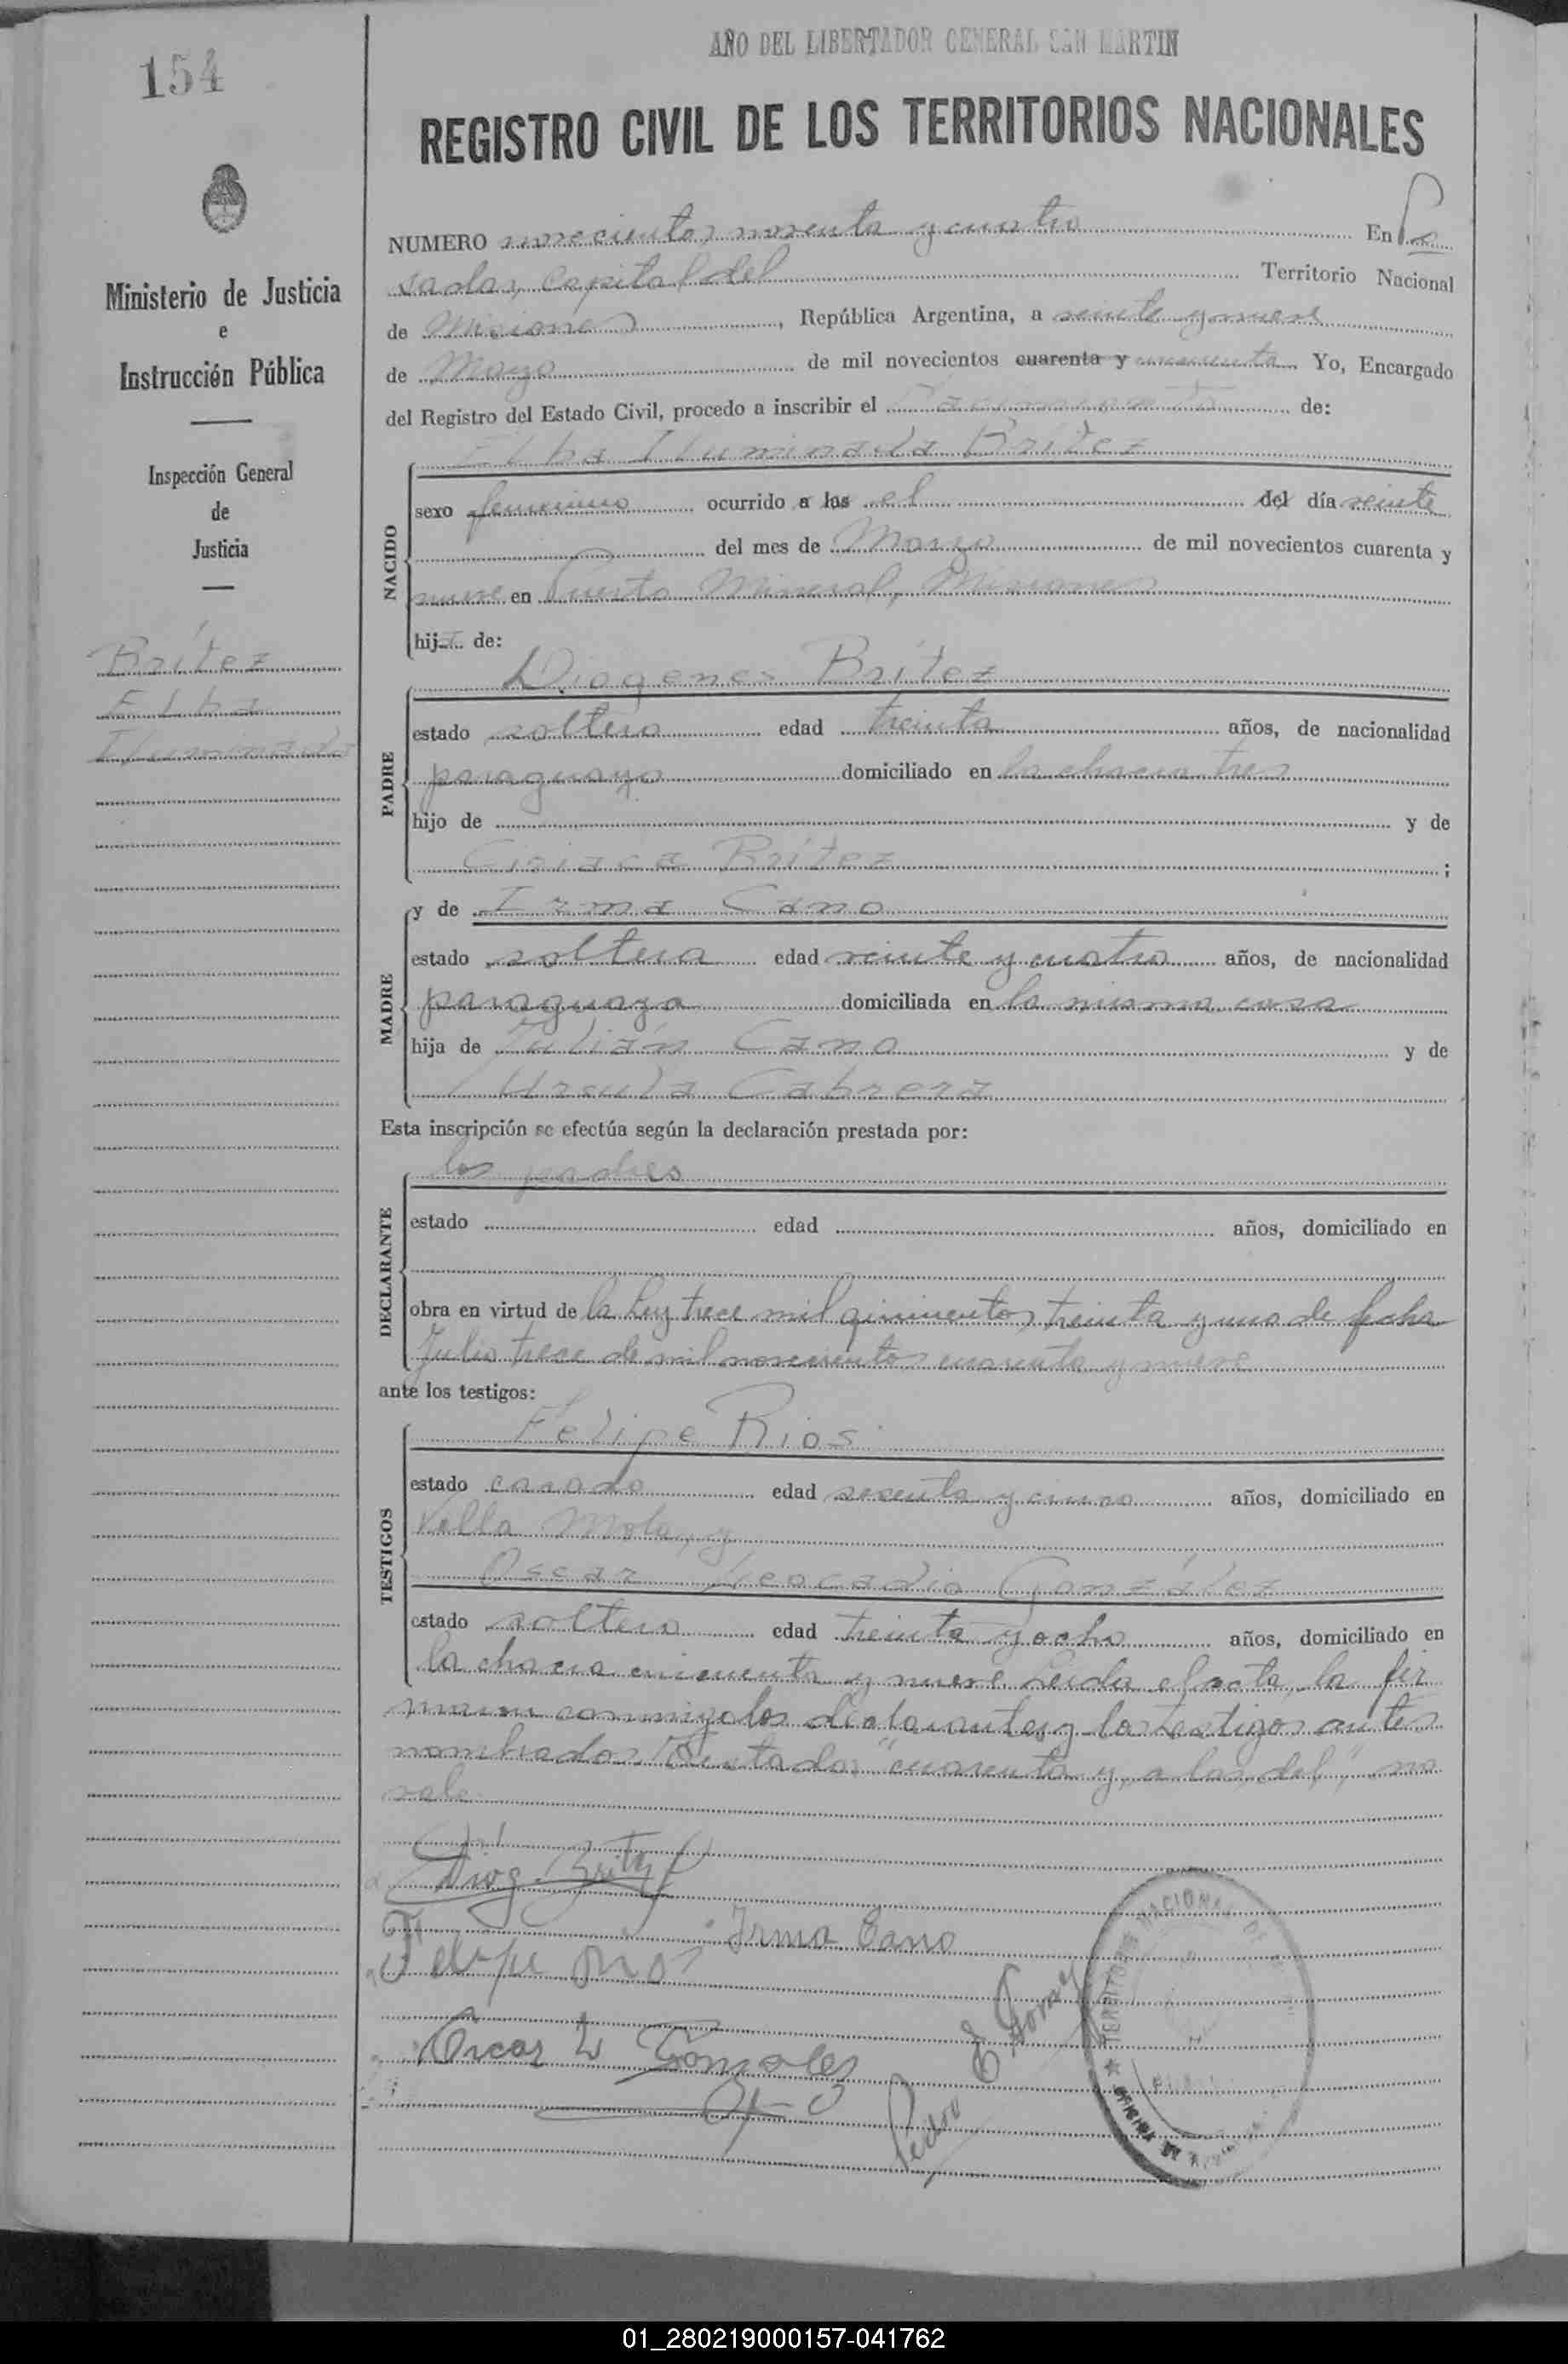 154
AÑO DEL LIBERTADOR GENERAL SAN MARTIN
REGISTRO CIVIL DE LOS TERRITORIOS NACIONALES
Ministerio de Justicia
e
Instrucción Pública
Inspección General
de
Justicia
Brítez
Elba
Iluminada
NUMERO novecientos noventa y cuatro En Po
sadas, capital del Territorio Nacional
de Misiones, República Argentina, a veinte y nueve
de Mayo de mil novecientos cuarenta y cincuenta Yo, Encargado
del Registro del Estado Civil, procedo a inscribir el nacimiento de:
Elba Iluminada Brítez
NACIDO
sexo femenino ocurrido a las el del día veinte
del mes de Marzo de mil novecientos cuarenta y
nueve en Puerto Mineral, Misiones
hija de:
PADRE
Diogenes Brítez
estado soltero edad treinta años, de nacionalidad
paraguayo domiciliado en la chacra tres
hijo de y de
Ciriaca Brítez ;
MADRE
y de Irma Cano
estado soltera edad veinte y cuatro años, de nacionalidad
paraguaya domiciliada en la misma casa
hija de Julián Cano y de
Ursula Cabrera
Esta inscripción se efectúa según la declaración prestada por:
DECLARANTE
los padres
estado edad años, domiciliado en
obra en virtud de la Ley trece mil quinientos treinta y uno de fecha
Julio trece de mil novecientos cuarenta y nueve
ante los testigos:
TESTIGOS
Felipe Rios
estado casado edad sesenta y cinco años, domiciliado en
Villa Mola, y
Oscar Leocadio González
estado soltero edad treinta y ocho años, domiciliado en
la chacra cincuenta y nueve Leida el acta, la fir
maron conmigo los declarantes y los testigos antes
nombrados. Testados "cuarenta y, a las, del", no
vale.
Diog. Britez
Irma Cano
Felipe Rios
Oscar L Gonzalez
Pedro E.
TERRITORIOS NACIONAL
OFICINA
01_280219000157-041762